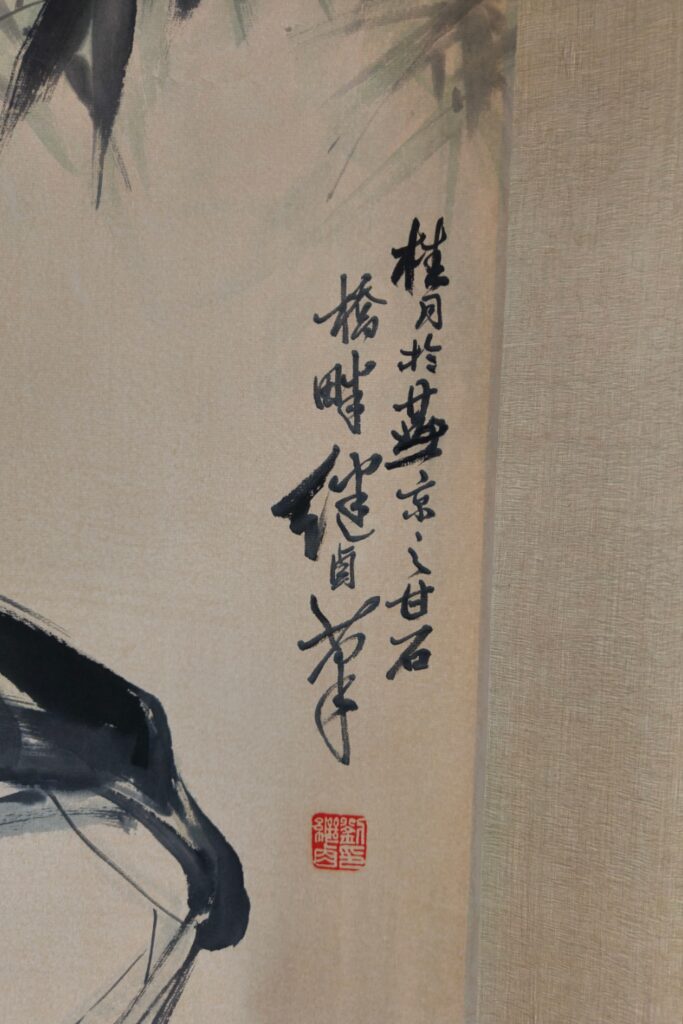 桂月於燕京之甘石
橋畔繼卣筆
劉繼卣印